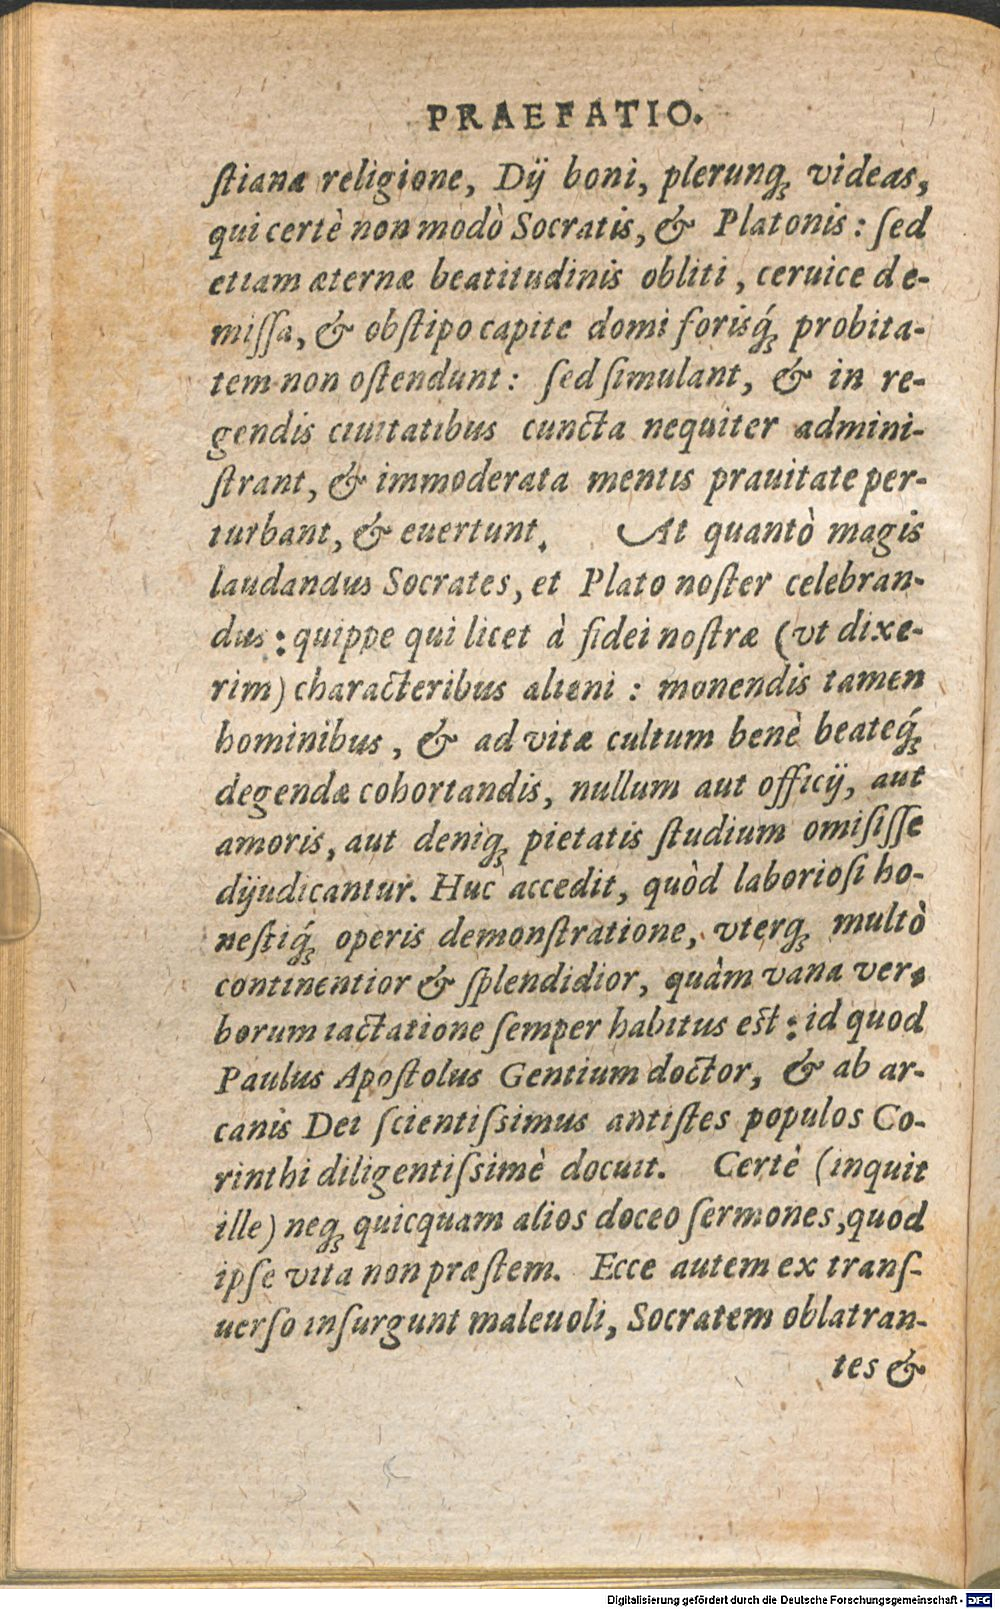 PRAEFATIO.
ſtianæ religione, Dij boni, plerunq́; videas,
qui certè non modò Socratis, & Platonis: ſed
etiam æternæ beatitudinis obliti, ceruice de-
miſſa, & obſtipo capite domi foriśq; probita-
tem non oſtendunt: ſed ſimulant, & in re-
gendis ciuitatibus cuncta nequiter admini-
ſtrant, & immoderata mentis prauitate per-
turbant, & euertunt. At quantò magis
laudandus Socrates, et Plato noſter celebran-
dus: quippe qui licet à fidei noſtræ (vt dixe-
rim) characteribus alieni: monendis tamen
hominibus, & ad vitæ cultum benè beateq́;
degendæ cohortandis, nullum aut officij, aut
amoris, aut deniq; pietatis ſtudium omiſiſſe
dijudicantur. Huc accedit, quòd laborioſi ho-
neſtiq́; operis demonſtratione, vterq; multò
continentior & ſplendidior, quàm vana ver-
borum iactatione ſemper habitus est: id quod
Paulus Apoſtolus Gentium doctor, & ab ar-
canis Dei ſcientiſsimus antiſtes populos Co-
rinthi diligentiſsimè docuit. Certè (inquit
ille) neq; quicquam alios doceo ſermones, quod
ipſe vita non præſtem. Ecce autem ex tranſ-
uerſo inſurgunt maleuoli, Socratem oblatran-
tes &
Digitalisierung gefördert durch die Deutsche Forschungsgemeinschaft - DFG